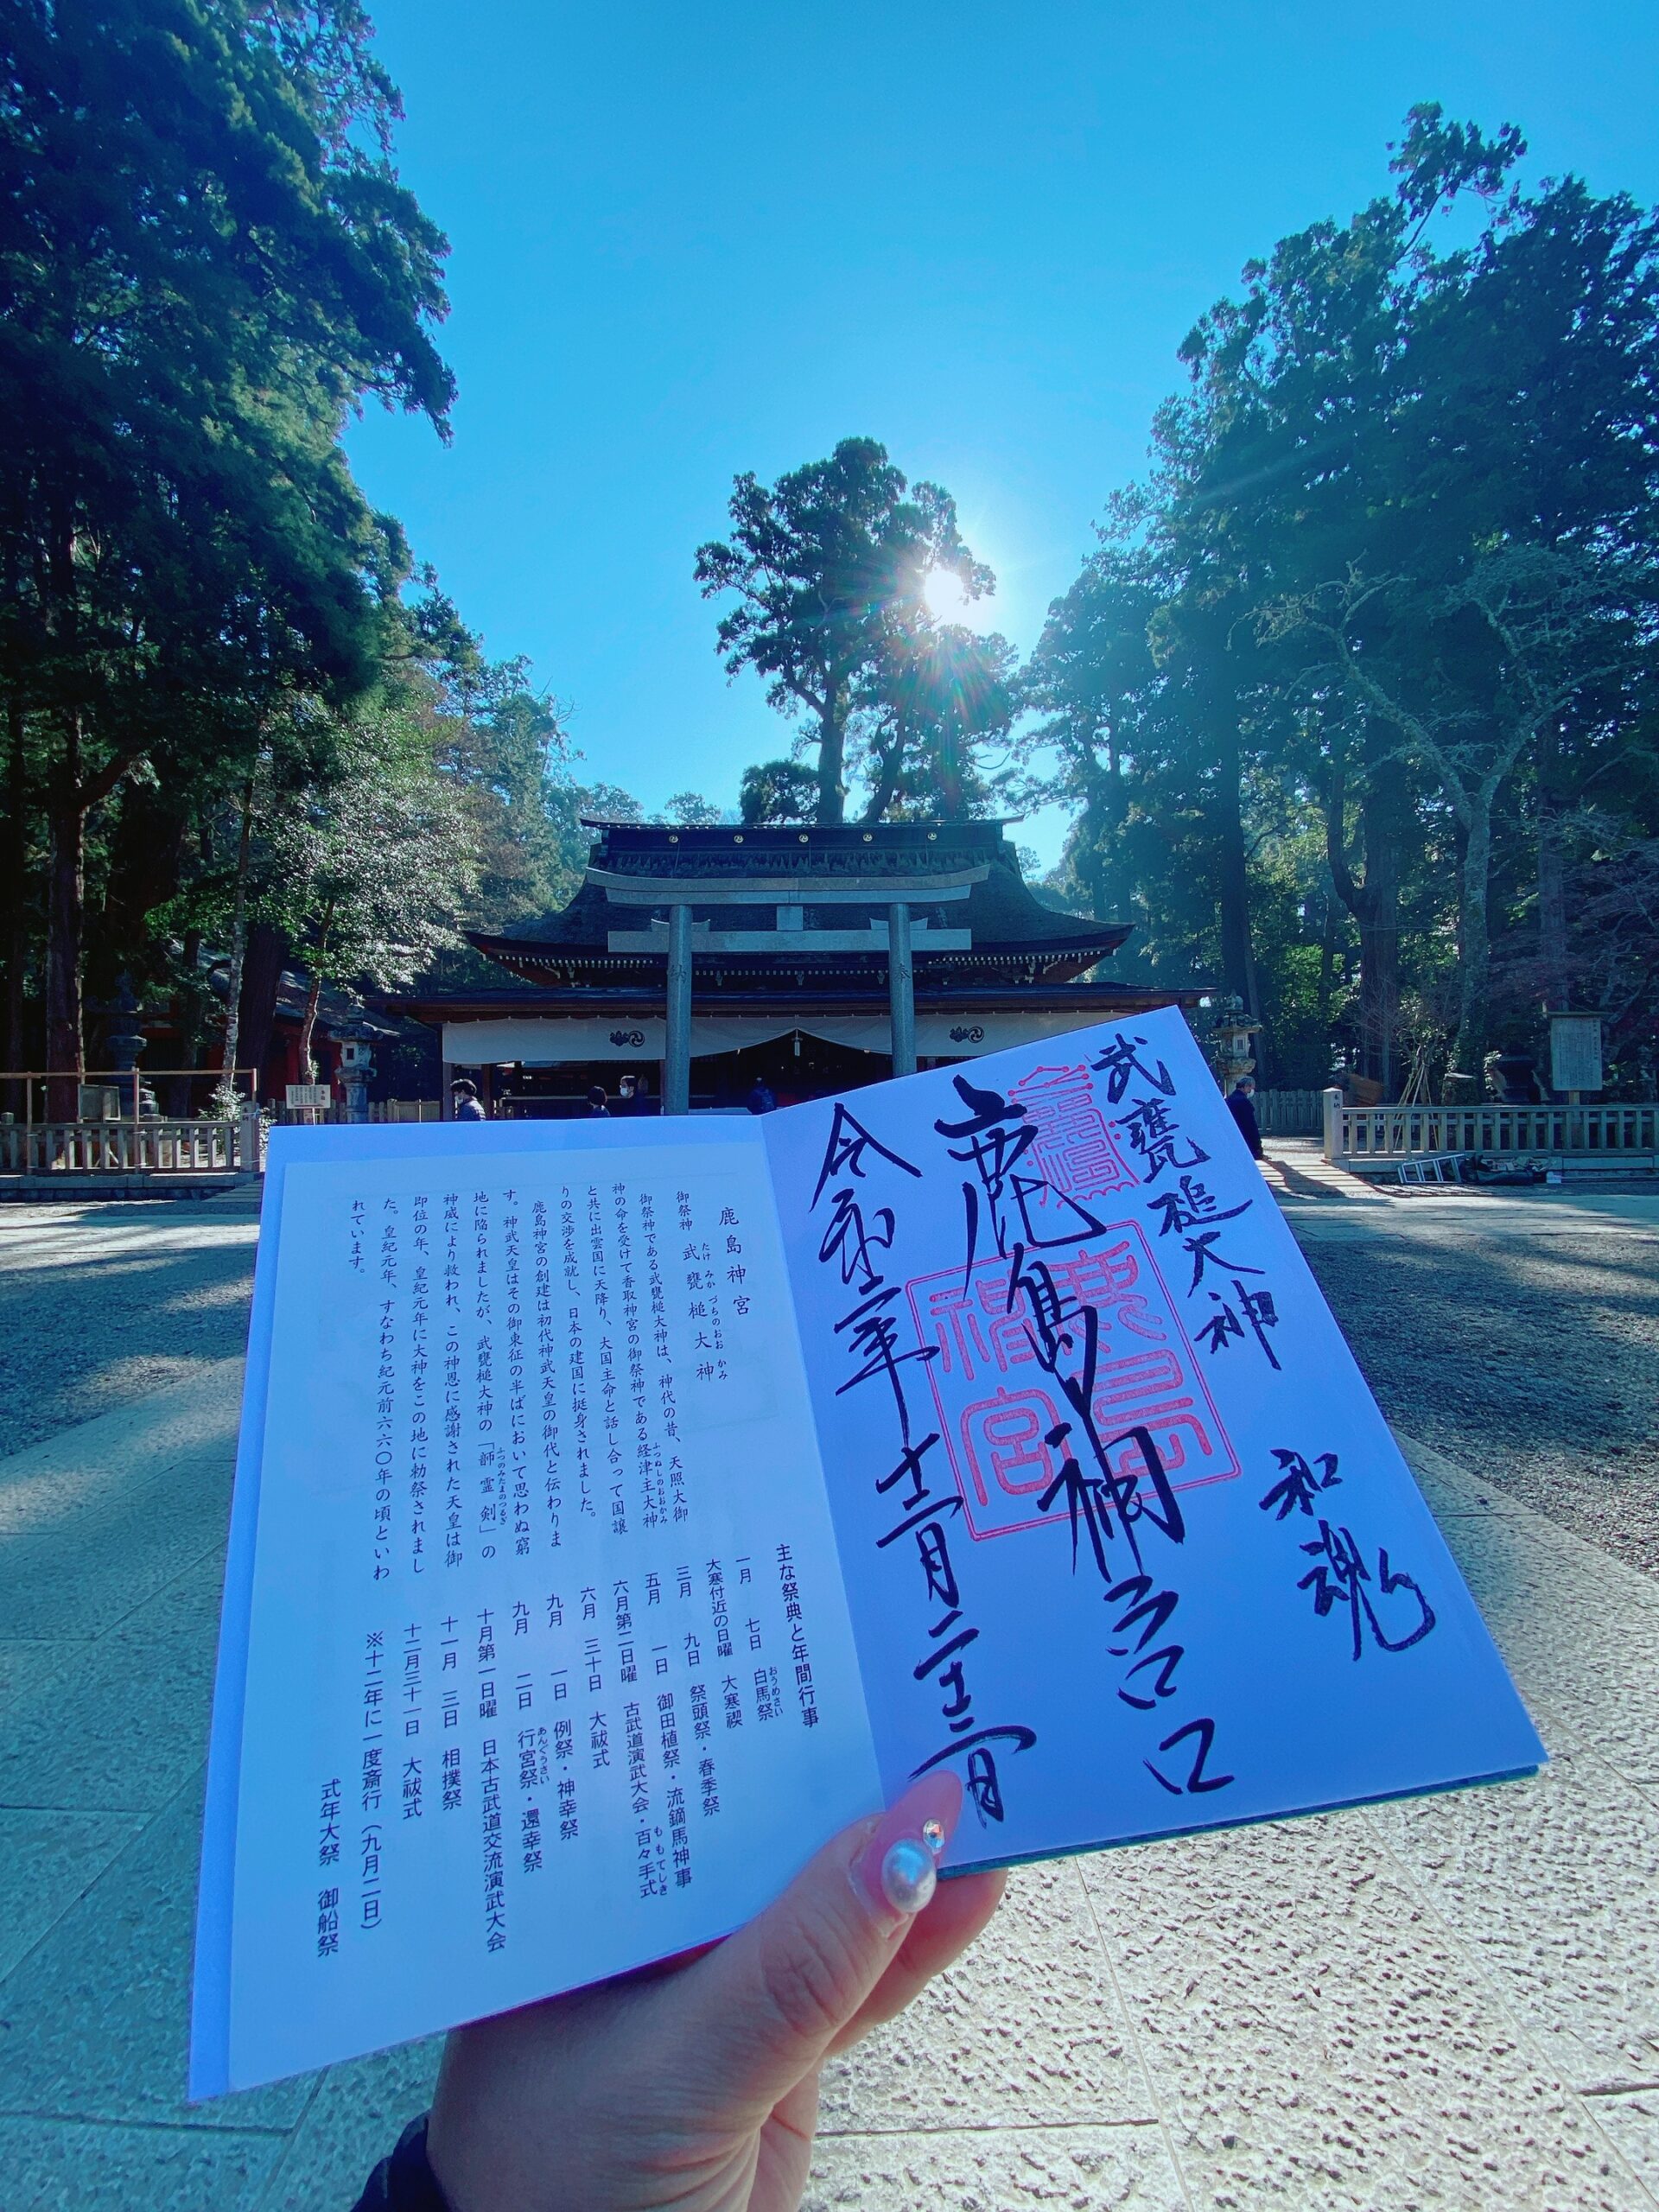 武甕槌大神
和魂
鹿島神宮
鹿島神宮
令和二年十二月二十二日
鹿島神宮
御祭神　武甕槌大神
たけみかづちのおおかみ
御祭神である武甕槌大神は、神代の昔、天照大御
神の命を受けて香取神宮の御祭神である経津主大神
ふつぬしのおおかみ
と共に出雲国に天降り、大国主命と話し合って国譲
りの交渉を成就し、日本の建国に挺身されました。
鹿島神宮の創建は初代神武天皇の御代と伝わりま
す。神武天皇はその御東征の半ばにおいて思わぬ窮
地に陥られましたが、武甕槌大神の「韴霊剣」の
ふつのみたまのつるぎ
神威により救われ、この神恩に感謝された天皇は御
即位の年、皇紀元年に大神をこの地に勅祭されまし
た。皇紀元年、すなわち紀元前六六〇年の頃といわ
れています。
主な祭典と年間行事
一月　七日　白馬祭
おうめさい
大寒付近の日曜　大寒禊
三月　九日　祭頭祭・春季祭
五月　一日　御田植祭・流鏑馬神事
六月第二日曜　古武道演武大会・百々手式
ももてしき
六月　三十日　大祓式
九月　一日　例祭・神幸祭
九月　二日　行宮祭・還幸祭
あんぐうさい
十月第一日曜　日本古武道交流演武大会
十一月　三日　相撲祭
十二月三十一日　大祓式
※十二年に一度斎行（九月二日）
式年大祭　御船祭